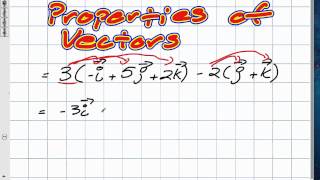 Properties of
Vectors
= 3(-i⃗ + 5j⃗ + 2k⃗) - 2(j⃗ + k⃗)
= -3i⃗